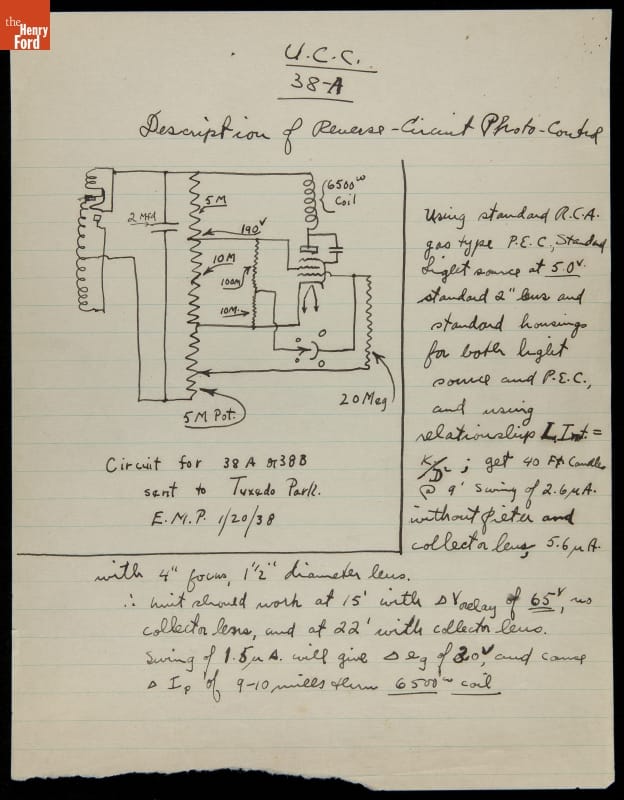 the
Henry
Ford
U.C.C.
38-A
Description of Reverse-Circuit Photo-Control
6500ʷ
Coil
5 M
2 Mfd
190ᵛ
10M
100M
10M
20 Meg
5M Pot.
Circuit for 38 A or 38B
sent to Tuxedo Park.
E.M.P. 1/20/38
Using standard R.C.A.
gas type P.E.C., Standard
Light source at 5.0ᵛ
standard 2" lens and
standard housings
for both light
source and P.E.C.,
and using
relationship L Int. =
K/D²; get 40 Ft Candles
@ 9' swing of 2.6 μA.
without and
collector lens, 5.6 μA.
with 4" focus, 1½" diameter lens.
∴ unit should work at 15' with Δ V relay of 65ᵛ, no
collector lens, and at 22' with collector lens.
Swing of 1.5 μA. will give Δ eg of 30ᵛ, and cause
Δ Iₚ of 9-10 mills thru 6500ʷ coil